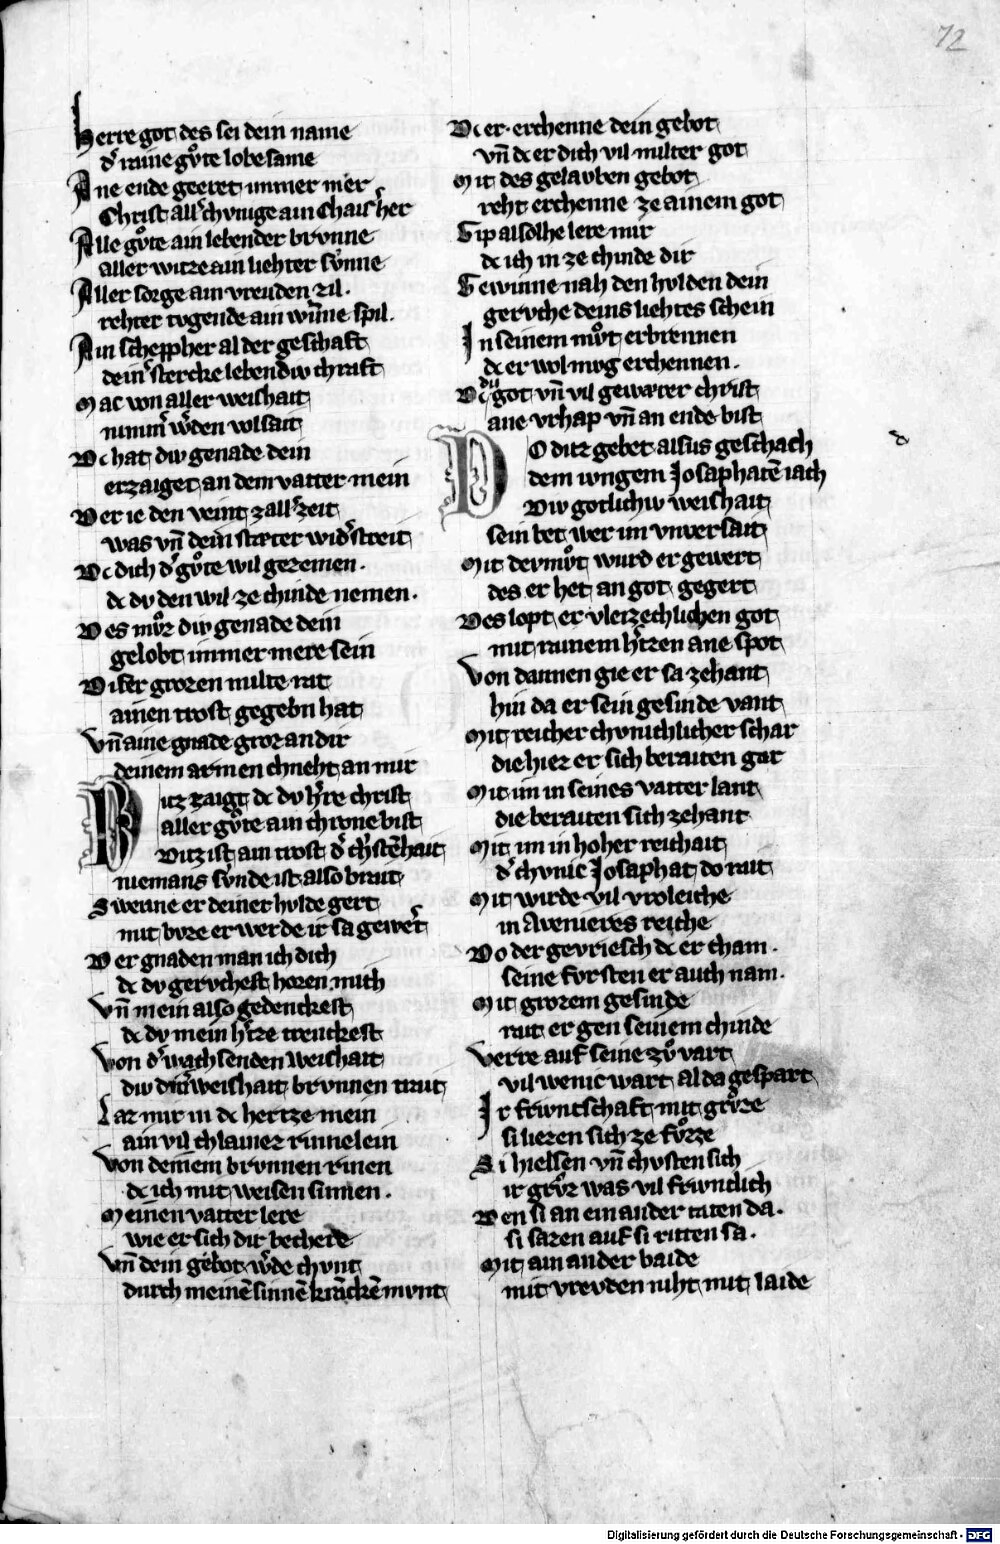 72
Herre got des sei dein name
d' raine guͦte lobesame
Ane ende geeret immer mer
Christ all' chvnige ain chaiser her
Alle guͦte ain lebender brvnne
aller witze ain liehter svnne
Aller sorge ain vreuden zil.
rehter tvgende ain wunne spil.
Ain schepher al der geschaft
dein' stercke lebendiv chraft
Mac von aller weishait
nimm' w'den vol sait
Dc hat div genade dein
erzaiget an dem vatter mein
Der ie den veint zall' zeit
was vn̄ dein stæter wid'streit
Dc dich d' guͦte wil gezemen.
dc dv den wil ze chinde nemen.
Des muͦz div genade dein
gelobt immer mere sein
Diser grozen milte rat
ainen trost gegebn hat
Vn̄ aine gnade groz an dir
deinem armen chneht an mir
Ditz zaigt dc dv h're christ
aller guͦte ain chrone bist
Ditz ist ain trost d' ch'stēhait
niemans svnde ist also brait
Swenne er deiner hvlde gert
mit bvze er werde ir sa gewert
Der gnaden man ich dich
dc dv gervchest horen mich
Vn̄ mein also gedenckest
dc dv mein h'tze trenckest
Von d' wachsenden weishait
div diner weishait brvnnen trait
Laz mir in dc hertze mein
ain vil chlainez rinnelein
Von deinem brvnnen rinen
dc ich mit weisen sinnen.
Meinen vatter lere
wie er sich dir bechere
Vn̄ dein gebot w'de chvnt
durch meinē sinnē kranckē mvnt
Dc er erchenne dein gebot
vn̄ dc er dich vil milter got
Mit des gelauben gebot
reht erchenne ze ainem got
Gip alsolhe lere mir
dc ich in ze chinde dir
Gewinne nah den hvlden dein
gervche deins liehtes schein
In seinem muͦt erbrennen
dc er wol mvg erchennen.
Dc du got vn̄ vil gewærer christ
ane vrhap vn̄ an ende bist
d
DO ditz gebet alsus geschach
dem ivngem Josaphatē iach
Div gotlichiv weishait
sein bet wer im vnverseit
Mit devmuͦt wurd er gewert
des er het an got gegert
Des lopt er vleizechlichen got
mit rainem h'tzen ane spot
Von dannen gie er sa zehant
hin da er sein gesinde vant
Mit reicher chvnichlicher schar
die hiez er sich beraiten gar
Mit im in seines vatter lant
die beraiten sich zehant
Mit im in hoher reichait
d' chvnic Josaphat do rait
Mit wirde vil vroleiche
in Avenieres reiche
Do der gevriesch dc er cham.
seine fvrsten er auch nam.
Mit grozem gesinde
rait er gen seinem chinde
Verre auf seine zuͦ vart
vil wenic wart al da gespart
Ir frivntschaft mit gruͦze
si liezen sich ze fuͦzze
Si hielsen vn̄ chvsten sich
ir gruͦz was vil frivntlich
Den si an ein ander taten da.
si sazen auf si ritten sa.
Mit ain ander baide
mit vrevden niht mit laide
Digitalisierung gefördert durch die Deutsche Forschungsgemeinschaft - DFG